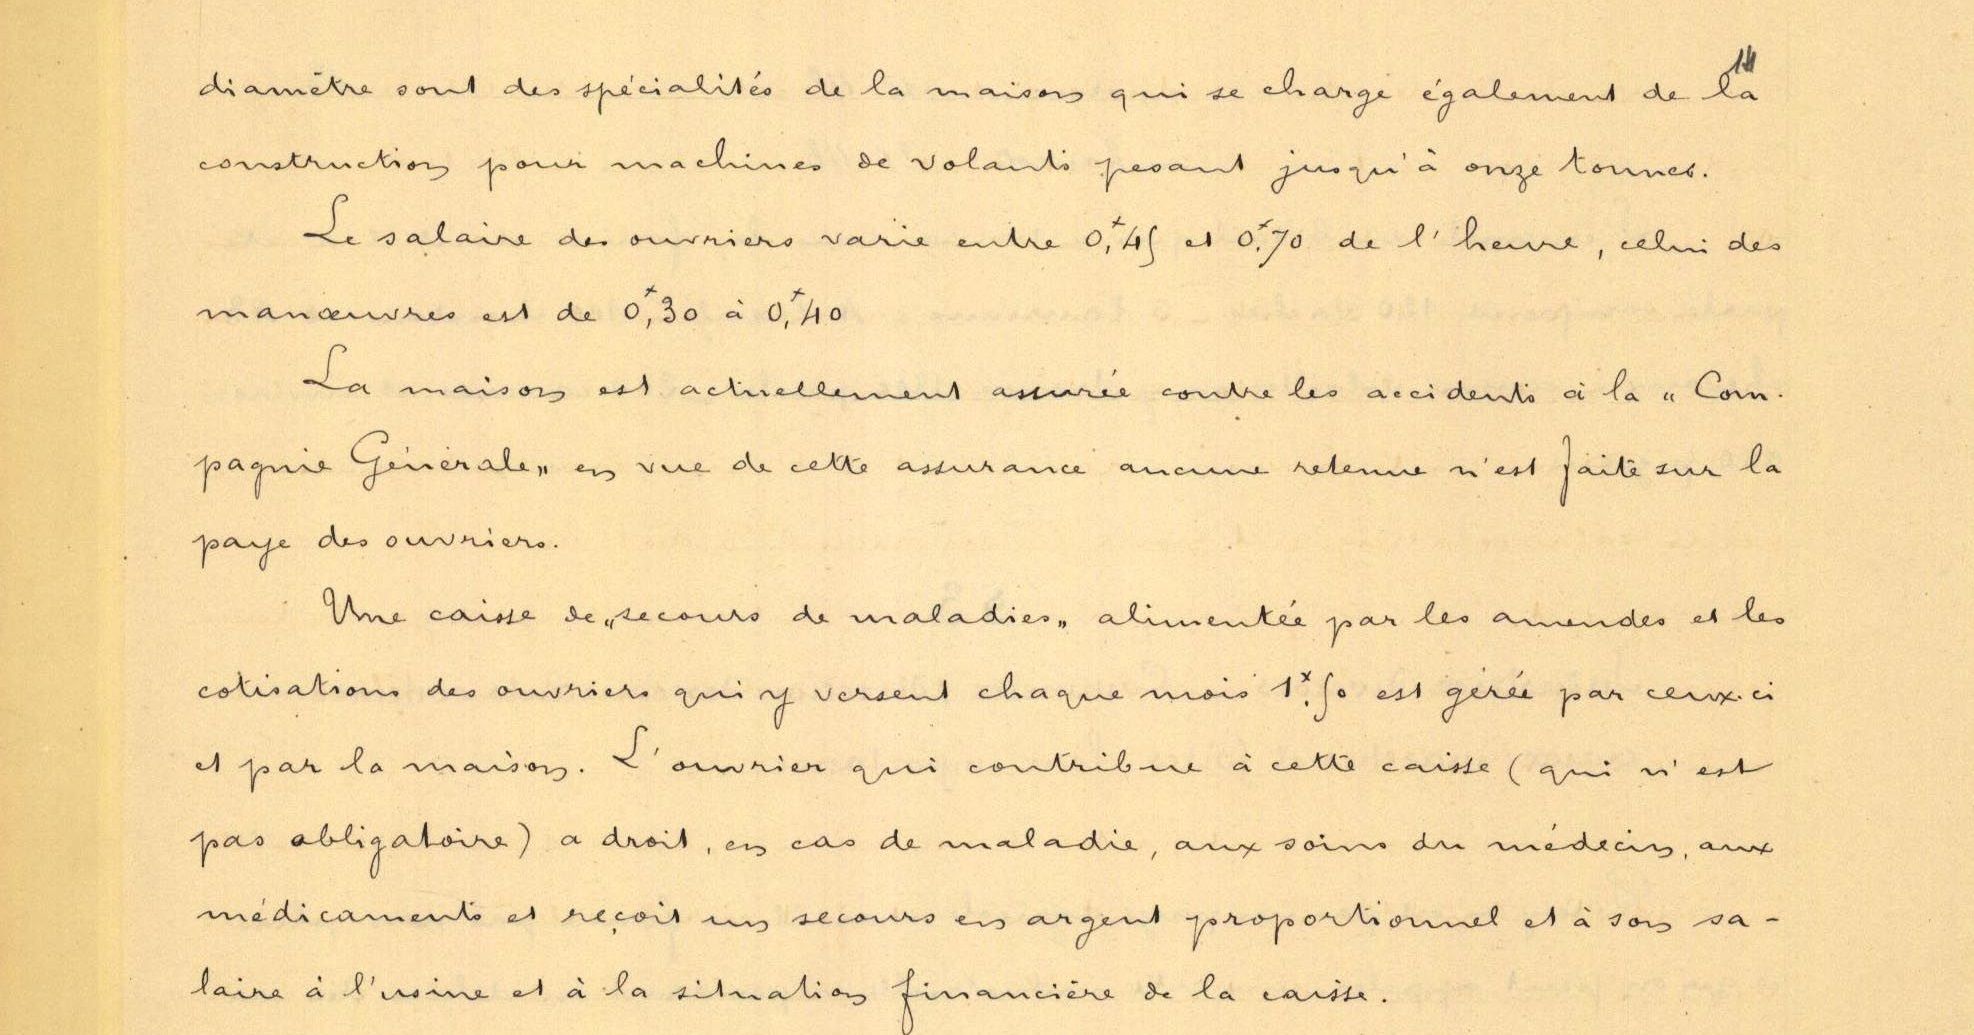 14
diamètre sont des spécialités de la maison qui se charge également de la
construction pour machines de volants pesant jusqu'à onze tonnes.
Le salaire des ouvriers varie entre 0,ᶠ45 et 0ᶠ,70 de l'heure, celui des
manœuvres est de 0ᶠ,30 à 0,ᶠ40
La maison est actuellement assurée contre les accidents à la „ Com-
pagnie Générale„ en vue de cette assurance aucune retenue n'est faite sur la
paye des ouvriers.
Une caisse de „secours de maladies„ alimentée par les amendes et les
cotisations des ouvriers qui y versent chaque mois 1ᶠ.50 est gérée par ceux-ci
et par la maison. L'ouvrier qui contribue à cette caisse (qui n'est
pas obligatoire) a droit, en cas de maladie, aux soins du médecin, aux
médicaments et reçoit un secours en argent proportionnel et à son sa-
laire à l'usine et à la situation financière de la caisse.